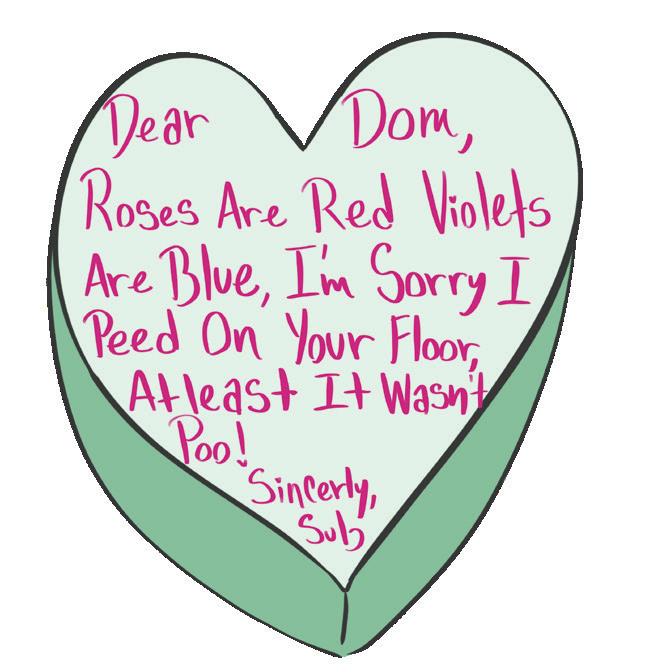 Dear Dom,
Roses Are Red Violets
Are Blue, I'm Sorry I
Peed On Your Floor,
Atleast It Wasn't
Poo!
Sincerly,
Sub